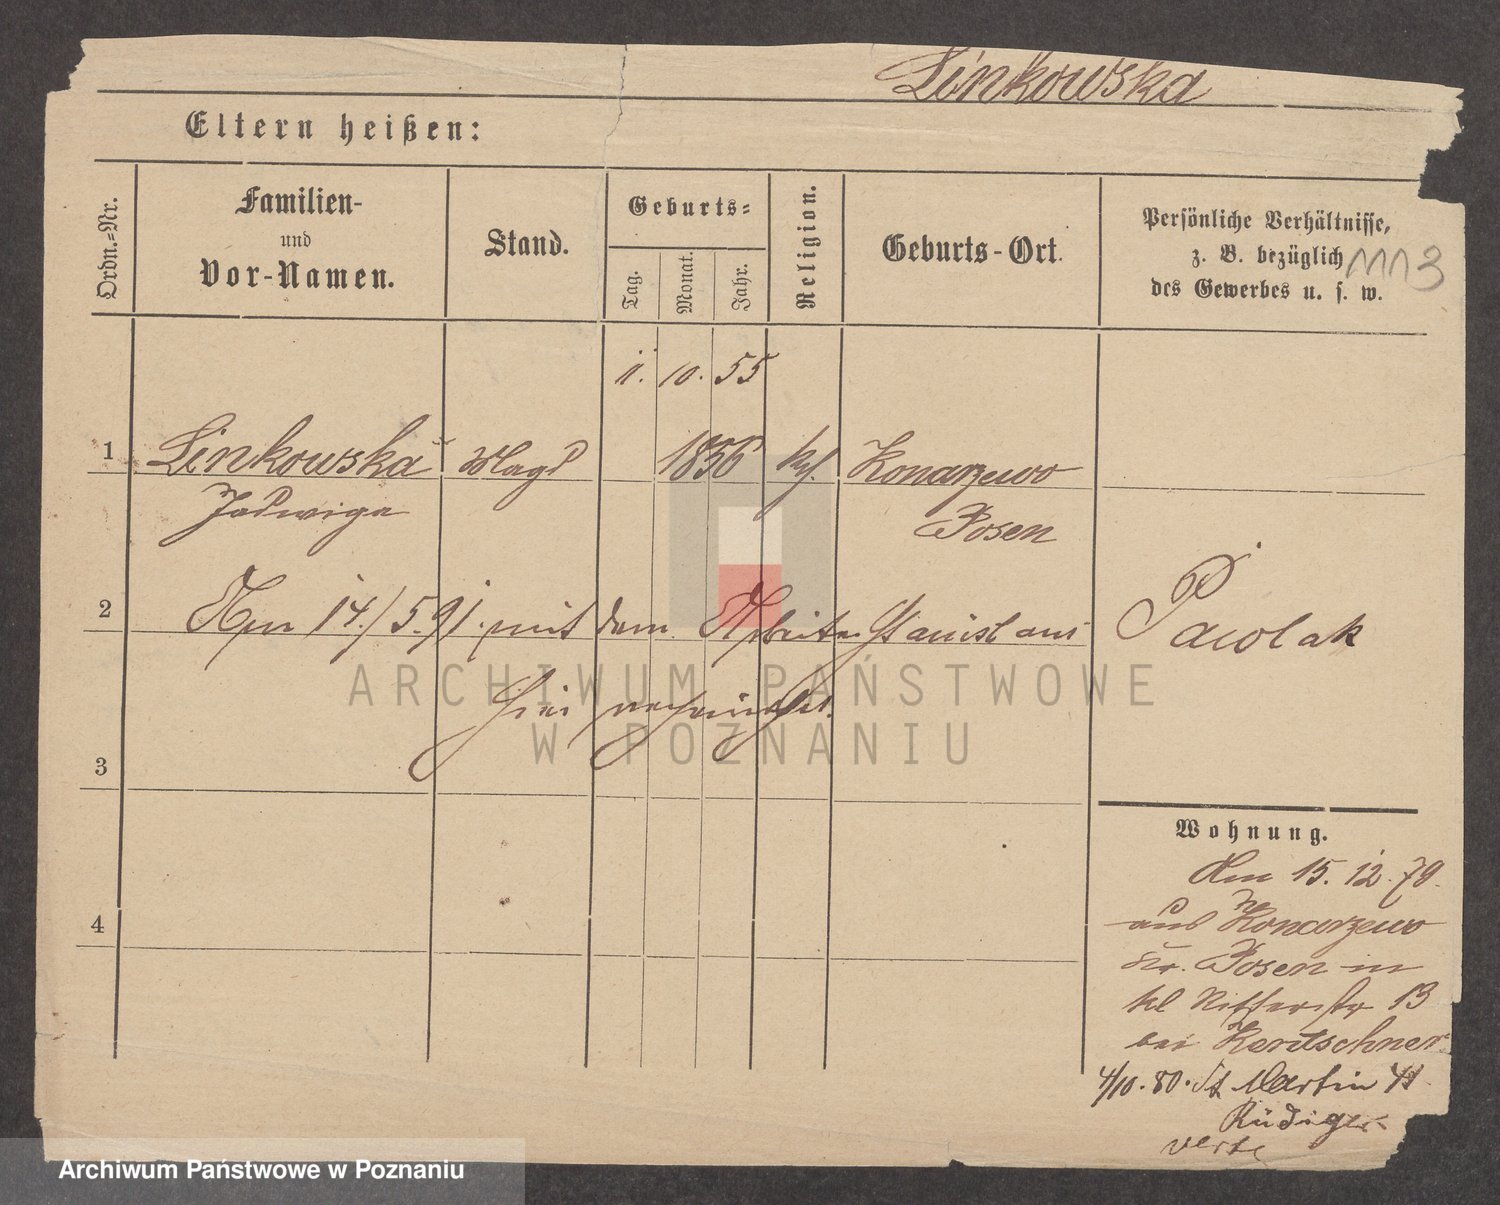 Linkowska
Eltern heißen:
Ordn.-Nr.
Familien-
und
Vor-Namen.
Stand.
Geburts-
Tag.
Monat.
Jahr.
Religion.
Geburts-Ort.
Persönliche Verhältnisse,
z. B. bezüglich
des Gewerbes u. s. w.
1113
11. 10. 55
1 Linkowska Magd 1856 kt. Konarzewo
Jadwiga Posen
2 Am 14./5. 91. mit dem Arbeiter Stanislaus Pawlak
hier verheirathet.
3
4
Wohnung.
Am 15. 12. 79.
aus Konarzewo
Kr. Posen in
kl Ritterstr 13
bei Kertschner
4/10. 80. St Martin 41
Rüdiger
verte
ARCHIWUM PAŃSTWOWE
W POZNANIU
Archiwum Państwowe w Poznaniu